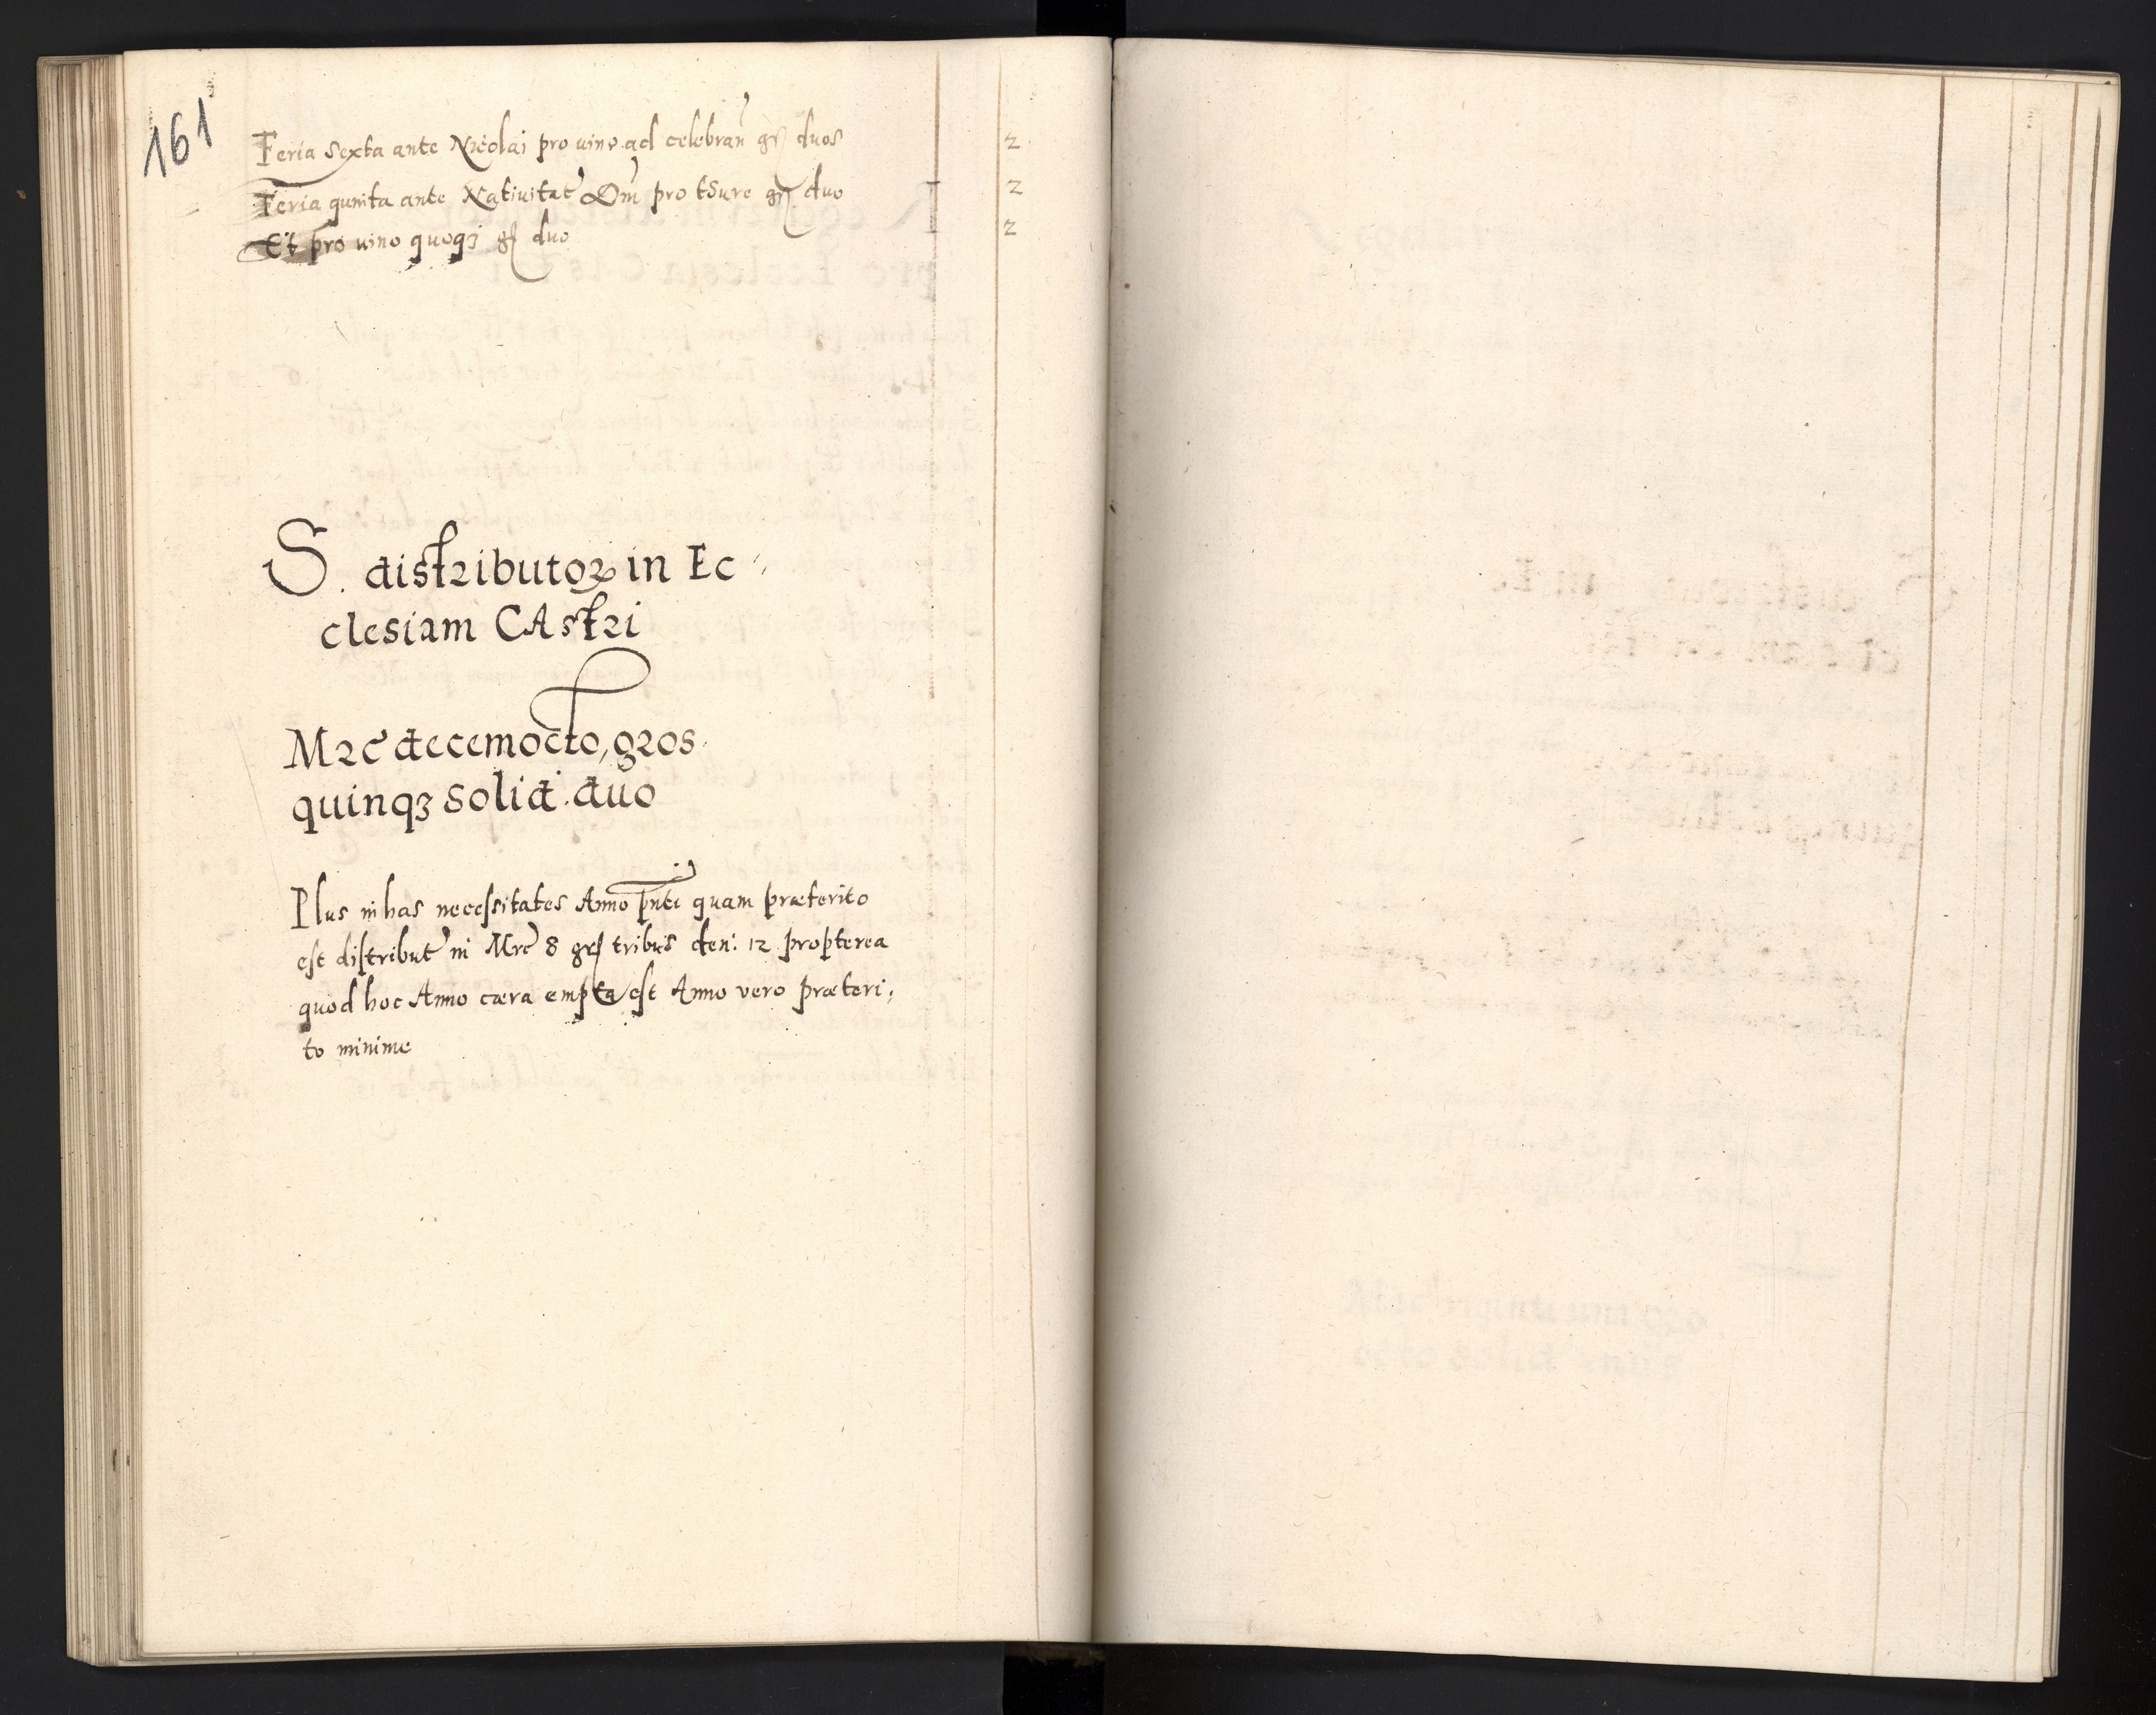 161
Feria sexta ante Nicolai pro uino ad celebran̄ gr̄ duos 2
Feria quinta ante Natiuitat̄ Dm̄ pro t͡sure gr̄ duo 2
Et pro uino quoqꝫ gr̄ duo 2
S. distributoꝝ in Ec
clesiam CAstri
Mrc̄ decemocto, gros
quinqꝫ solid. duo
Plus in has necessitates Anno pn̄ti quam præterito
est distribut̄ in Mrc̄ 8 grs tribus den: 12 propterea
quod hoc Anno cæra empta est Anno vero præteri,
to minime